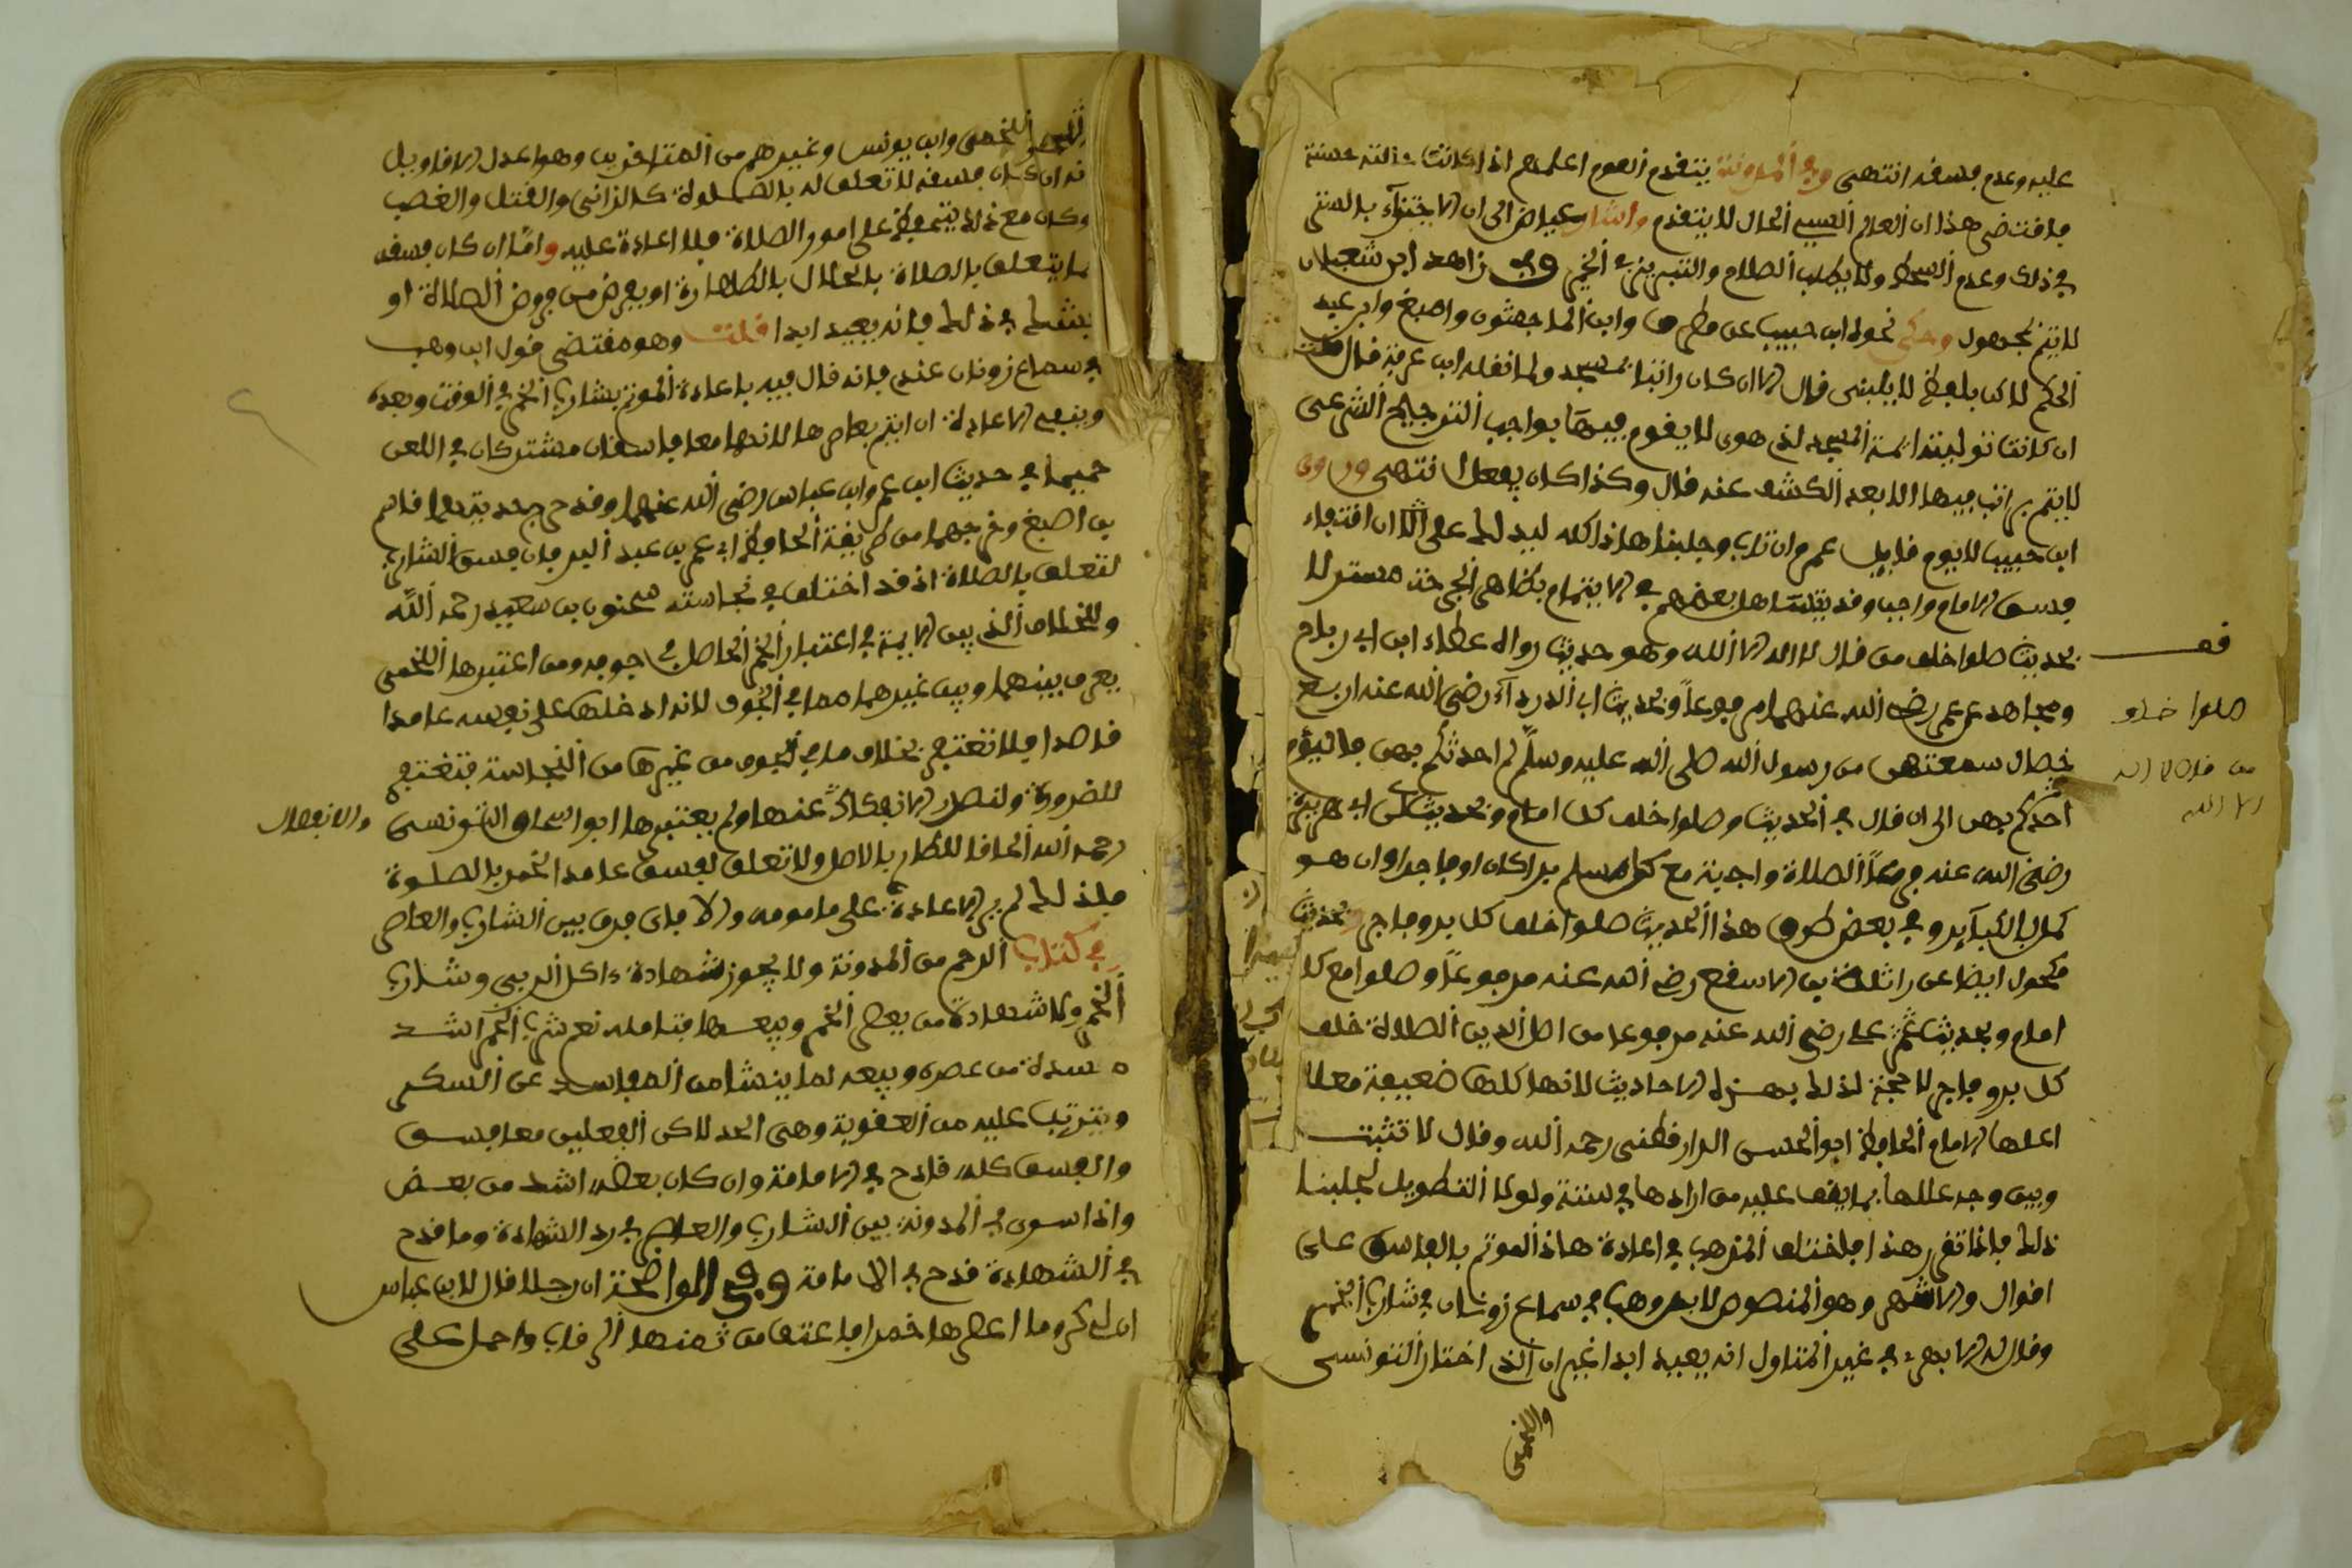 عليه وعدم فسفه انتهى وفي المدونة يتقدم القوم اعلمهم اذا كانت حالته حسنة
فاقتضى هذا ان العالم السيء الحال لا يتقدم واشار عياض الى ان الاجتزاء بالستر
في ذلك وعدم السخط ولا يطلب الصلام والتبريز في الخير وفي زاهد ابن شعبان
لا يتم بمجهول وحكى نحوه ابن حبيب عن مطرف وابن الماجشون واصبغ وابن عبد
الحكم لاكن بلفظ لا ينبغي قال الا ان كان راتبا بمسجد ولما نقله ابن عرفة قال قلت
ان كانت تولية ائمة المسجد لذي هوى لا يقوم فيها بواجب الترجيح الشرعي
لا يتم براتب فيها الا بعد الكشف عنه قال وكذا كان يفعل انتهى وروى
ابن حبيب لا يوم قاتل عمد وان تاب وجلبنا هاذا كله ليدلك على ان انتفاء
فسق الامام واجب وقد يتساهل بعضهم في الايتمام بظاهر الجرحة مستدلا
بحديث صلوا خلف من قال لا اله الا الله وهو حديث رواه عطاء ابن ابي رباح
ومجاهد عن ابن عمر رضي الله عنهما مرفوعا وبحديث ابي الدرداء رضي الله عنه اربع
خصال سمعتهن من رسول الله صلى الله عليه وسلم لم احدثكم بهن فاليوم
احدثكم بهن الى ان قال في الحديث وصلوا خلف كل امام وبحديث ابي هريرة
رضي الله عنه مرفوعا الصلاة واجبة مع كل مسلم برا كان او فاجرا وان هو
عمل بالكبآير وفي بعض طرق هذا الحديث صلوا خلف كل بر وفاجر وبحديث
مكحول ايضا عن واثلة بن الاسقع رضي الله عنه مرفوعا وصلوا مع كل
امام وبحديث علي رضي الله عنه مرفوعا من اصل الدين الصلاة خلف
كل بر وفاجر لا حجة لذلك بهذه الاحاديث لانها كلها ضعيفة معللة
اعلها الامام الحافظ ابو الحسن الدارقطني رحمه الله وقال لا تثبت
وبين وجه عللها بما يقف عليه من ارادها في سننه ولولا التطويل لجلبنا
ذلك فاذا تقرر هذا فاختلف المذهب في اعادة هاذا الموتم بالفاسق على
اقوال والاشهر وهو المنصوص لابن وهب في سماع زونان في شارب الخمر
وقال الابهري في غير المتاول انه يعيد ابدا غير ان الذي اختار التونسي
واللخمي
صلوا خلف
من قال لا اله
الا الله
اللخمي وابن يونس وغيرهم من المتاخرين وهو اعدل الاقاويل
انه ان كان فسقه لا تعلق له بالصلوة كالزانى والقتل والغصب
وكان مع ذلك يتحفظ على امور الصلاة فلا اعادة عليه واما ان كان فسقه
مما يتعلق بالصلاة باخلال بالطهارة او بفرض من فروض الصلاة او
بشرط في ذلك فانه يعيد ابدا قلت وهو مقتضى قول ابن وهب
في سماع زونان عنده فانه قال فيه باعادة الموتم بشارب الخمر في الوقت وبعده
وينفي الاعادة ان ايتم بعاصرها لانهما معا فاسقان مشتركان في اللعن
حسبما في حديث ابن عمر وابن عباس رضي الله عنهما وقد خرج حديثهما قاسم
بن اصبغ وخرجهما من طريقة الحافظ ابي عمر بن عبد البر فان فسق الشارب
لتعلق بالصلاة اذ قد اختلف في نجاسته سحنون بن سعيد رحمه الله
وللخلاف الذي بين الايمة في اعتبار الخمر الحاصل في جوفه ومن اعتبرها اللخمي
يفرق بينهما وبين غيرهما مما في الجوف لانه ادخلها على نفسه عامدا
قاصدا فلا تغتفر بخلاف ما في الجوف من غيرها من النجاسة فتغتفر
للضرورة ولتصل الانفكاك عنها ولم يعتبرها ابو اسحاق التونسي
رحمه الله الحاقا للطارئ بالاصل ولا تعلق لفسق عامد الخمر بالصلوة
فلذلك لم ير الاعادة على مامومه والا فاي فرق بين الشارب والعاصر
في كتاب الرجم من المدونة ولا يجوز شهادة اكل الربى وشارب
الخمر ولا شهادة من يعصر الخمر ويبيعها فتامله نعم شرب الخمر اشد
مفسدة من عصره وبيعه لما ينشا من المفاسد عن السكر
ويترتب عليه من العقوبة وهي الحد لاكن الفعلين معا فسق
والفسق كله قادح في الامامة وان كان بعضه اشد من بعض
واذا سوى في المدونة بين الشارب والعاصر في رد الشهادة وما قدح
في الشهادة قدح في الامامة وفي الواضحة ان رجلا قال لابن عباس
ان لي كروما اعصرها خمرا فاعتق من ثمنها الرقاب واحمل على
والانفصال